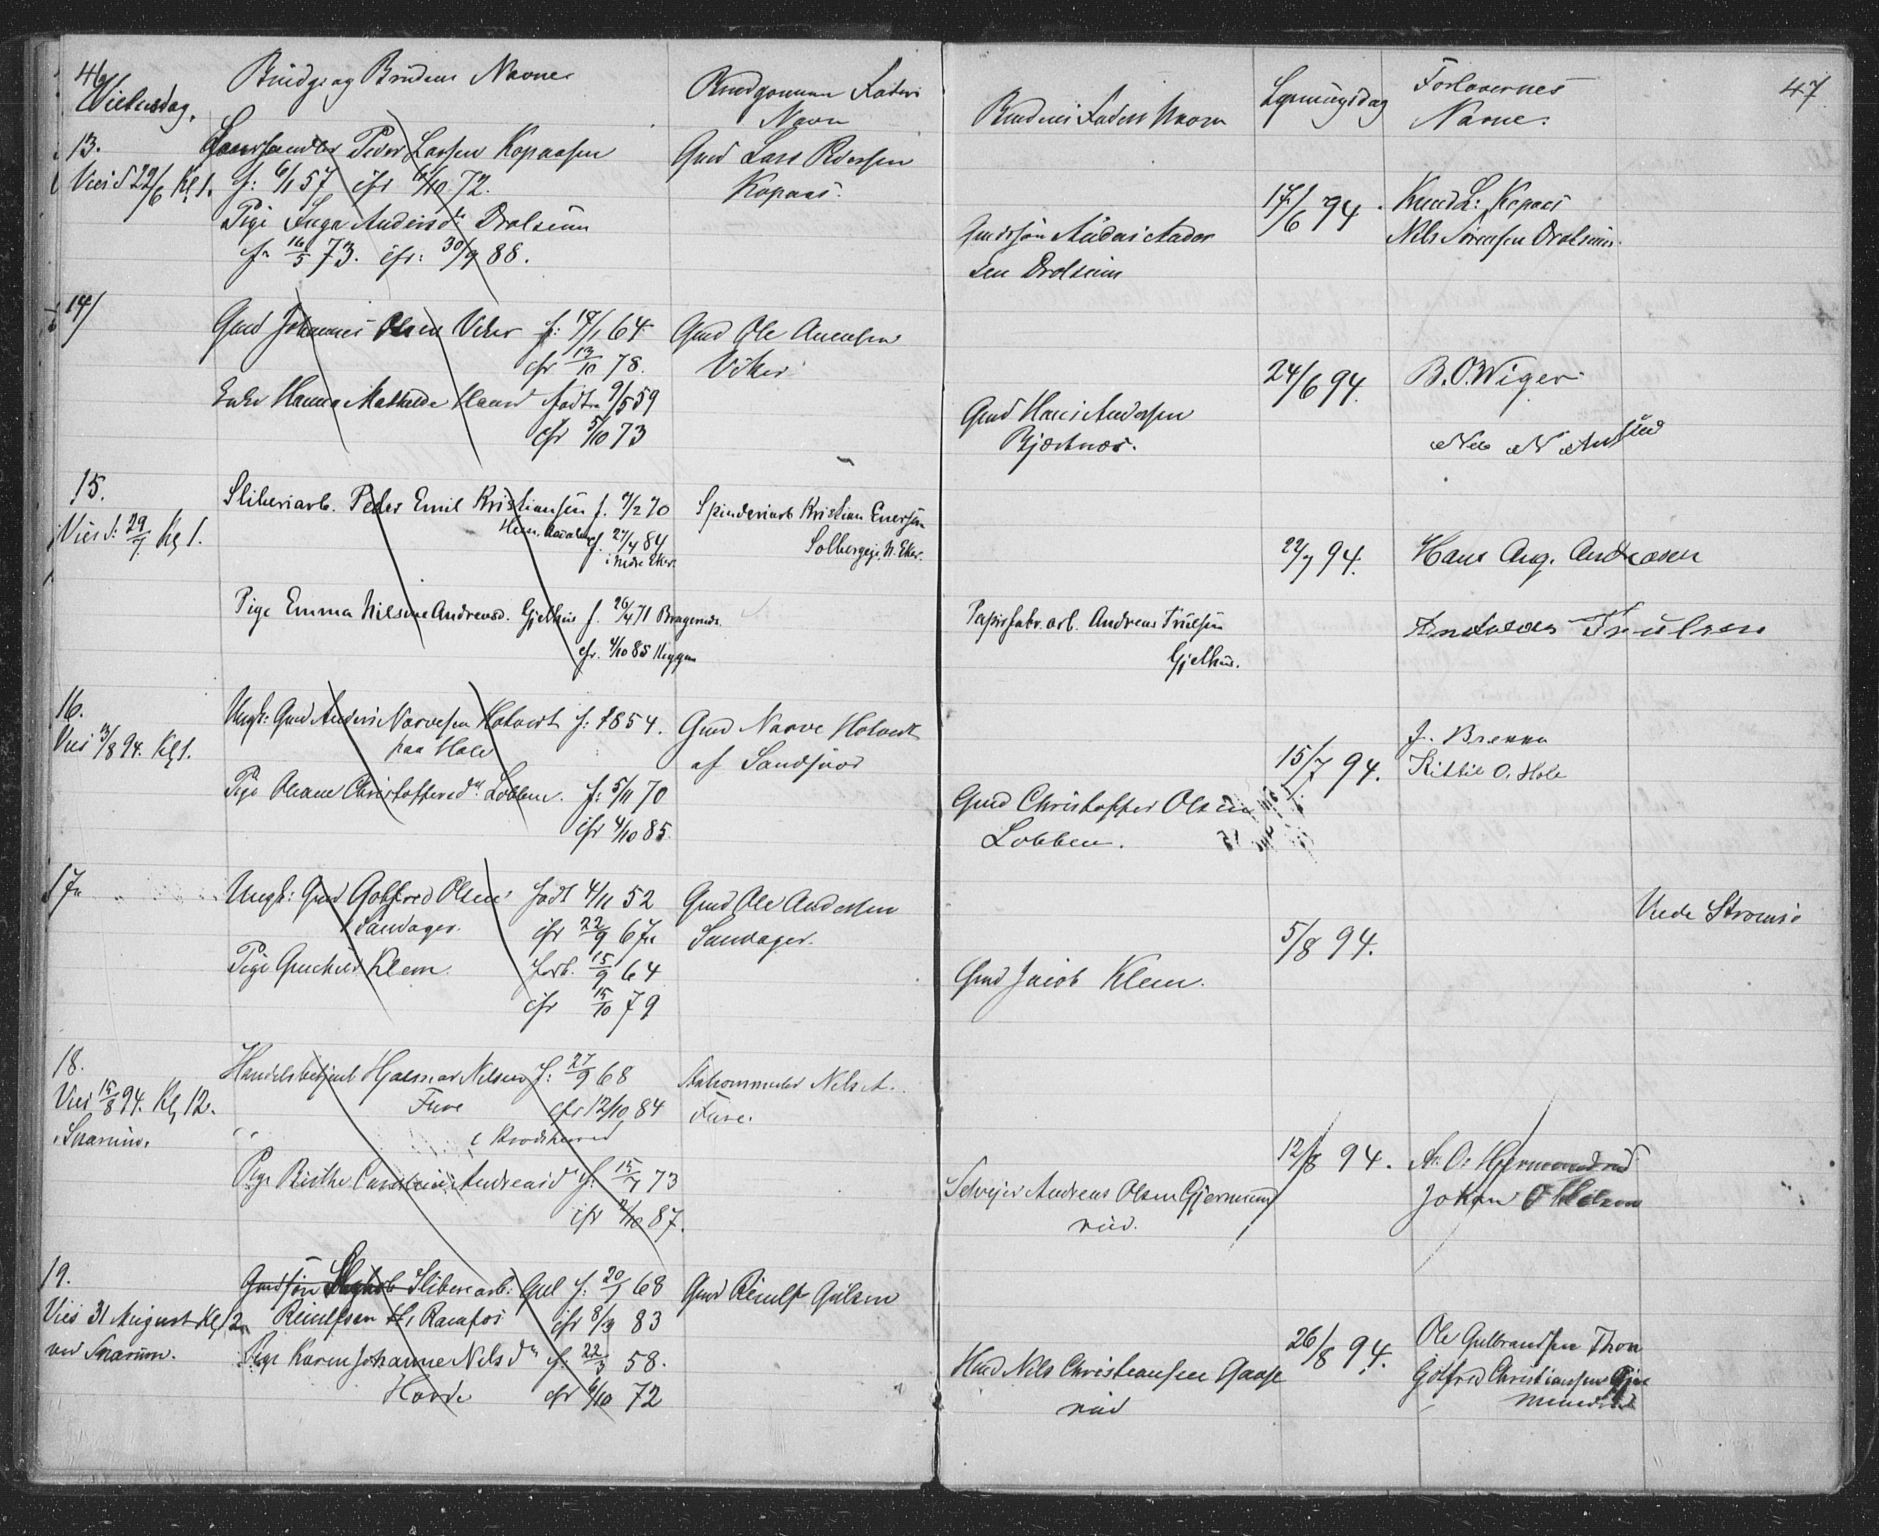 46
Vielsesdag.
Brudgs og Brudens Navne
Brudgommens Faders
Navn
Brudens Faders Navn
Lysningsdag
Forlovernes
Navne.
47
13.
Viet d 22/6 Kl 1.
Peder Larsen Kopaasen
f: 6/1 57 cfr 6/10 72.
Pige Inga Andersdr Drolsum
f. 16/5 73. cfr: 30/9 88.
Gmd Lars Pedersen
Kopaas.
Gmdssøn Anders Andor
sen Drolsum
17/6 94.
Knud L. Kopaas
Nils Sørensen Drolsum.
14/
Gmd Johannes Olsen Viker f: 18/1 64
cfr 13/10 78.
Enke Hanna Mathilde Hansd født 9/5 59
cfr 5/10 73
Gmd Ole Amundsen
Viker
Gmd Hans Andersen
Bjertnæs.
24/6 94.
B. O. Wiger
15.
Vies d: 29/7 Kl 1.
Sliberiarb. Peder Emil Kristiansen f. 9/2 70
cfr. 27/4 84
i Nedre Eker.
Pige Emma Nilsine Andreasd. Gjethus f. 26/4 71 Bragernæs.
cfr. 4/10 85 Heggen
Spinderiarb Kristian Enersen
Solbergejr. N. Eker.
Papirfabr. arb. Andreas Truelsen
Gjethus.
22/7 94.
Hans Aug. Andreasen
Andreas Truelsen
16.
Vies 3/8 94. Kl 1.
Ungk: Gmd Anders Narvesen Hotvedt f: 1854.
paa Hole
Pige Oleane Christoffersdr Lobben. f: 5/11 70
cfr 4/10 85.
Gmd Narve Hotvedt
af Sandsvær
Gmd Christoffer Olsen
Lobben.
15/7 94.
J. Brenna
Kittil O. Hole
17.
Ungk: Gmd Gotfred Olsen født 4/11 52
Sandager. cfr 22/9 67
Pige Gunhild Klem. født. 15/9 64
cfr 15/10 79
Gmd Ole Andersen
Sandager.
Gmd Jacob Klem.
5/8 94.
Viede Strømsø
18.
Vies 15/8 94. Kl 12.
i Snarum.
Handelsbetjent Hjalmar Nilsen f: 27/9 68
Fure cfr 12/10 84
i Krødsherred
Pige Birthe Caroline Andreasd f. 15/7 73
cfr 2/10 87.
Nils A.
Fure.
Selvejer Andreas Olsen Gjermund
rud.
12/8 94.
A. O. Hjermundrud
Johan O
19.
Vies 31 August Kl 12
ved Snarum.
Gmdssøn Sliberiarb: Gul f: 20/1 68
Reinulfsen Ramfos cfr 8/3 83
Pige Karen Johanne Nelsdr f. 22/3 58.
Hovde cfr 6/10 72
Gmd Reinulf Gulsen
Hmd Nils Christiansen Gaase
rud
26/8 94.
Ole Gulbrandsen Thon
Gotfred Christiansen Gjer
mundrud